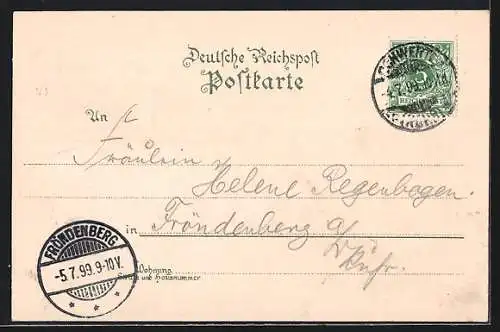 Deutsche Reichspost
Postkarte
4.7.99
An
Fräulein
Helene Regenbogen.
in Fröndenberg a/
Ruhr.
FRÖNDENBERG
-5.7.99.9-10V.
Wohnung
Straße und Hausnummer